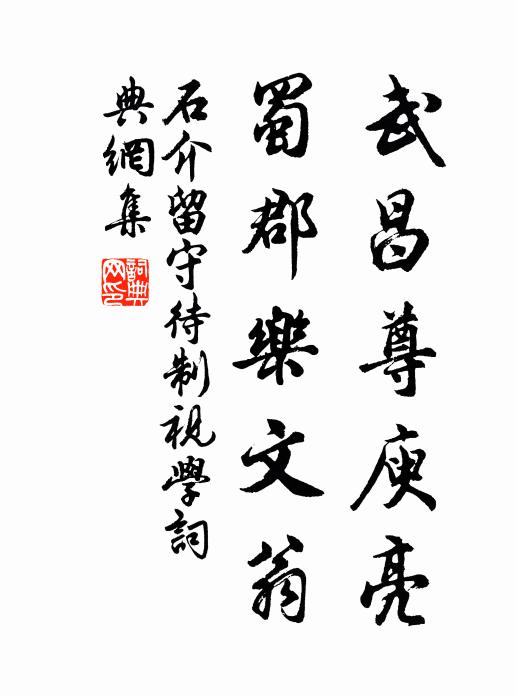 武昌尊庾亮
蜀郡樂文翁
石介留守待制視學詞
典網集
詞典
網印